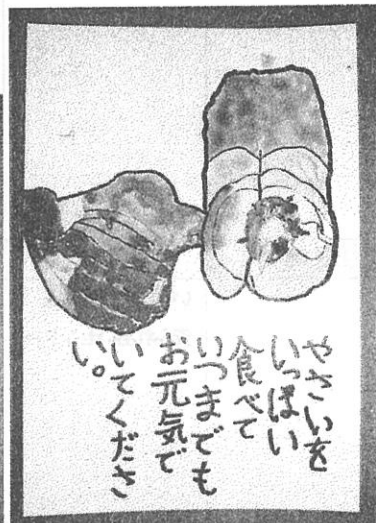 やさいを
いっぱい
食べて
いつまでも
お元気で
いてくださ
い。